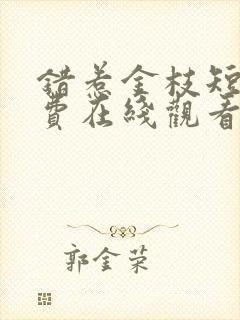 錯惹金枝短
費在綫觀看
郭金荣